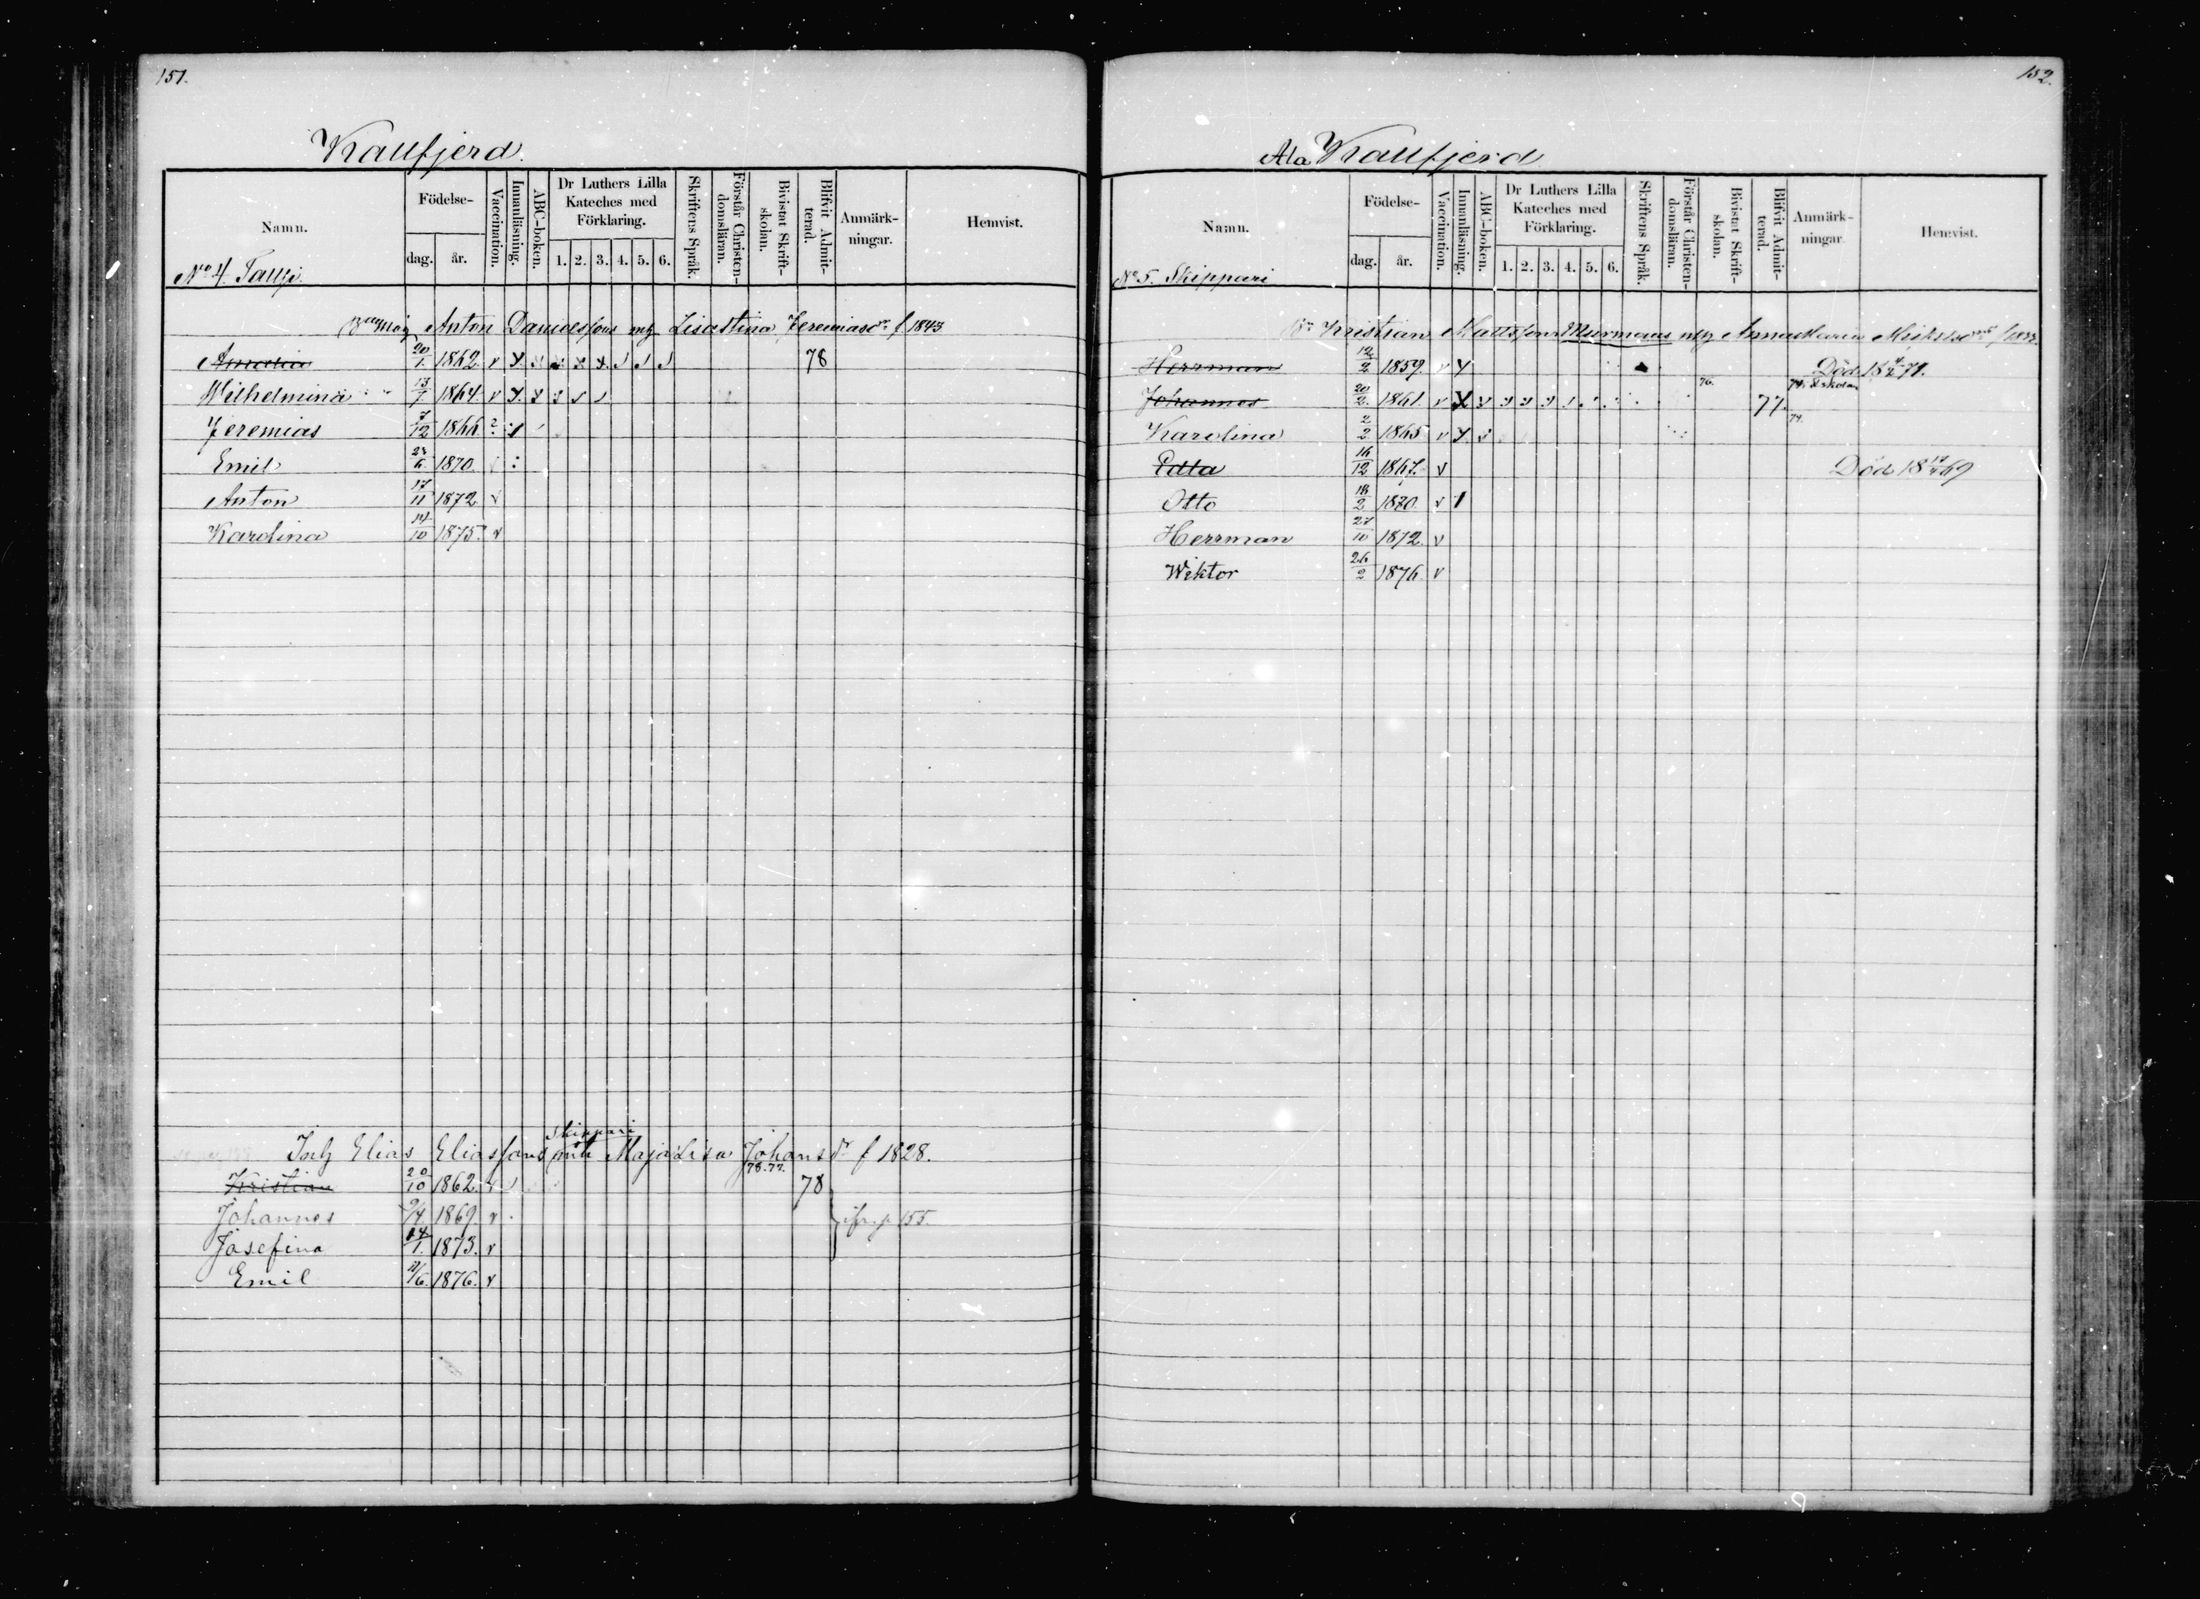 151.
Kallfjerd.
Namn.
Födelse-
dag.
år.
Vaccination.
Innanläsning.
ABC-boken.
Dr Luthers Lilla
Kateches med
Förklaring.
1. 2. 3. 4. 5. 6.
Skriftens Språk.
Förstår Christen-
domsläran.
Bivistat Skrift-
skolan.
Blifvit Admit-
terad.
Anmärk-
ningar.
Hemvist.
No 4.
Anton Danielssons Lisastina Jeremiasdr f 1843
Amalia 20/1. 1862. v 78
Wilhelmina 13/7. 1864. v
Jeremias 7/12 1866. ?
Emil 1870.
Anton 17/11 1872. v
Karolina 14/10 1875. v
Skippari
Elias Eliassons Maja Lisa Johansdr f 1828.
78.77.
Kristian 20/10 1862. v 78
Johannes 9/4. 1869. v 155.
Josefina 1873. v
Emil 1876. v
152.
Ala Kallfjerd
Namn.
Födelse-
dag.
år.
Vaccination.
Innanläsning.
ABC-boken.
Dr Luthers Lilla
Kateches med
Förklaring.
1. 2. 3. 4. 5. 6.
Skriftens Språk.
Förstår Christen-
domsläran.
Bivistat Skrift-
skolan.
Blifvit Admit-
terad.
Anmärk-
ningar.
Hemvist.
No 5. Skippari
Kristian Mattssons Murmans Anna Maria
Herrman 12/2 1859. v Död 18 4/2 71.
Johannes 20/2. 1861. v 76. 77.
Karolina 2/2 1865 v 74.
Edla 16/12 1867. v Död 18 69
Otto 18/2 1870. v
Herrman 27/10 1872. v
Wiktor 26/2 1876. v